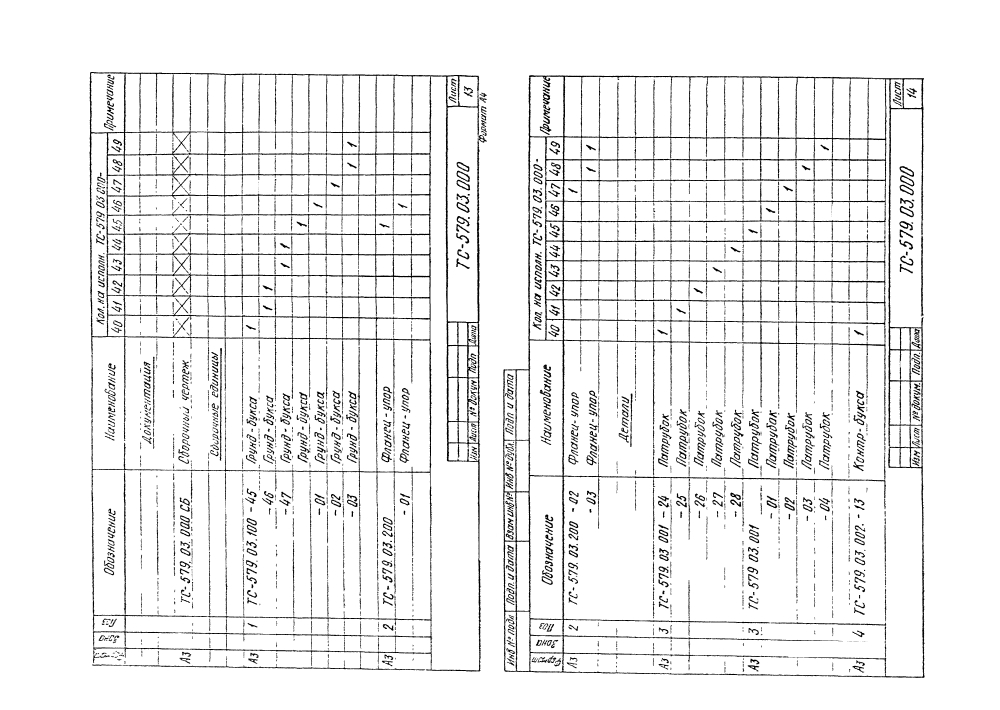 Формат Зона Поз Обозначение Наименование Кол. на исполн. ТС-579.03.000- Примечание
40 41 42 43 44 45 46 47 48 49
Документация
А3 ТС-579.03.000 СБ Сборочный чертеж X X X X X X X X X X
Сборочные единицы
А3 1 ТС-579.03.100 -45 Грунд-букса 1
-46 Грунд-букса 1 1
-47 Грунд-букса 1 1
Грунд-букса 1
-01 Грунд-букса 1
-02 Грунд-букса 1
-03 Грунд-букса 1 1
А3 2 ТС-579.03.200 Фланец-упор 1
-01 Фланец-упор 1
Изм Лист № Докум Подп Дата
ТС-579.03.000
Лист
13
Формат А4
Инв. № подл Подп. и дата Взам инв № Инв № дубл. Подп и дата
Формат Зона Поз Обозначение Наименование Кол на исполн. ТС-579.03.000- Примечание
40 41 42 43 44 45 46 47 48 49
А3 2 ТС-579.03.200 -02 Фланец-упор 1
-03 Фланец-упор 1 1
Детали
А3 3 ТС-579.03.001 -24 Патрубок 1
-25 Патрубок 1
-26 Патрубок 1
-27 Патрубок 1
-28 Патрубок 1
А3 3 ТС-579 03.001 Патрубок 1
-01 Патрубок 1
-02 Патрубок 1
-03 Патрубок 1
-04 Патрубок 1
А3 4 ТС-579.03.002.-13 Контр-букса 1
Изм Лист № докум. Подп. Дата
ТС-579.03.000
Лист
14